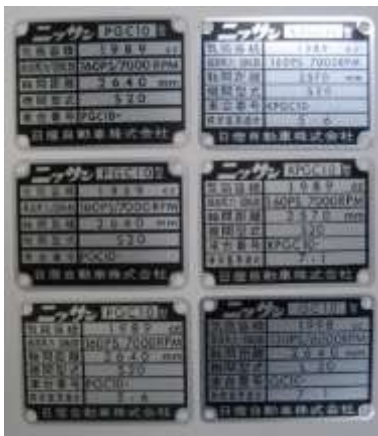 ニッサン PGC10 型
気筒容積 1989 cc
160PS/7000RPM
軸間距離 2640 mm
機関型式 S20
車台番号 PGC10-
日産自動車株式会社
ニッサン KPGC10 型
気筒容積 1989 cc
160PS/7000RPM
軸間距離 2570 mm
機関型式 S20
車台番号 KPGC10-
5-6
日産自動車株式会社
ニッサン PGC10 型
気筒容積 1989 cc
160PS/7000RPM
軸間距離 2640 mm
機関型式 S20
車台番号 PGC10-
日産自動車株式会社
ニッサン KPGC10 型
気筒容積 1989 cc
160PS/7000RPM
軸間距離 2570 mm
機関型式 S20
車台番号 KPGC10-
7-1
日産自動車株式会社
ニッサン PGC10 型
気筒容積 1989 cc
160PS/7000RPM
軸間距離 2640 mm
機関型式 S20
車台番号 PGC10-
日産自動車株式会社
ニッサン GC10 型
気筒容積 1998 cc
軸間距離 2640 mm
機関型式 L20
車台番号 GC10-
7-1
日産自動車株式会社